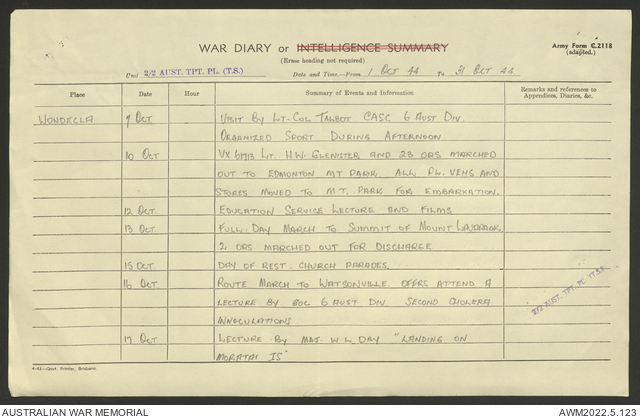 WAR DIARY or INTELLIGENCE SUMMARY
Army Form C.2118
(adapted.)
(Erase heading not required)
Unit 2/2 AUST. TPT. PL. (T.S.) Date and Time—From 1 OCT 44 To 31 OCT 44
Place Date Hour Summary of Events and Information Remarks and references to Appendices, Diaries, &c.
WONDECLA 9 OCT VISIT BY LT-COL TALBOT CASC 6 AUST DIV.
ORGANIZED SPORT DURING AFTERNOON
10 OCT LT. H.W. GLENISTER AND 23 ORS MARCHED
OUT TO EDMONTON MT PARK. ALL PL. VEHS AND
STORES MOVED TO M.T. PARK FOR EMBARKATION.
12 OCT. EDUCATION SERVICE LECTURE AND FILMS
13 OCT FULL DAY MARCH TO SUMMIT OF MOUNT
2 ORS MARCHED OUT FOR DISCHARGE
15 OCT. DAY OF REST. CHURCH PARADES.
16 OCT. ROUTE MARCH TO WATSONVILLE. OFFRS ATTEND A
LECTURE BY GOC 6 AUST DIV. SECOND CHOLERA
INNOCULATIONS
2/2 AUST. TPT. PL. (T.S.)
17 OCT. LECTURE BY MAJ. W.L. DAY "LANDING ON
MORATAI IS"
4-43—Govt. Printer, Brisbane.
AUSTRALIAN WAR MEMORIAL AWM2022.5.123